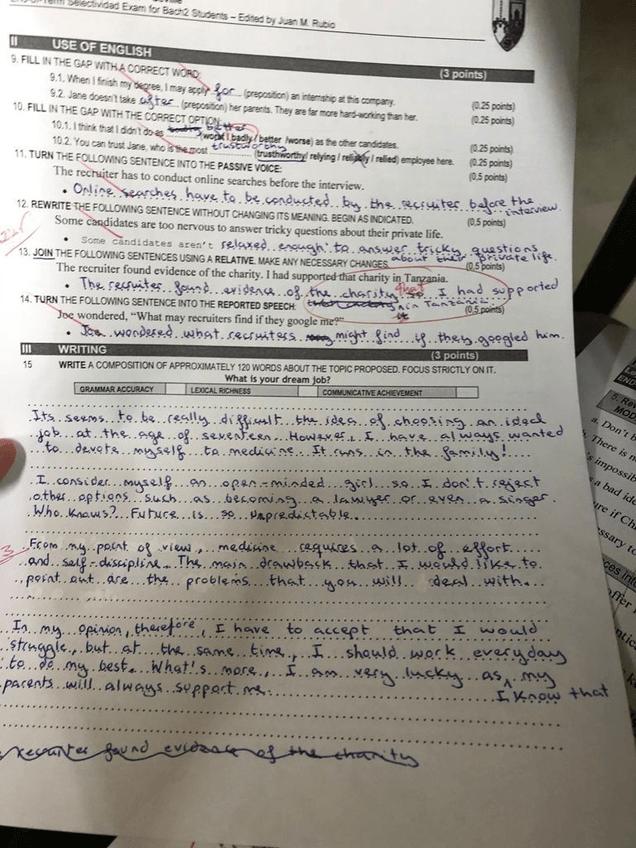 Selectividad Exam for Bach2 Students – Edited by Juan M. Rubio
II USE OF ENGLISH
(3 points)
9. FILL IN THE GAP WITH A CORRECT WORD:
9.1. When I finish my degree, I may apply for (preposition) an internship at this company. (0.25 points)
9.2. Jane doesn't take after (preposition) her parents. They are far more hard-working than her. (0.25 points)
10. FILL IN THE GAP WITH THE CORRECT OPTION:
10.1. I think that I didn't do as better / badly / better /worse) as the other candidates. (0.25 points)
10.2. You can trust Jane, who is the most trustworthy (trusthworthy/ relying / reliably / relied) employee here. (0.25 points)
11. TURN THE FOLLOWING SENTENCE INTO THE PASSIVE VOICE: (0,5 points)
The recruiter has to conduct online searches before the interview.
• Online searches have to be conducted by the recruiter before the interview.
12. REWRITE THE FOLLOWING SENTENCE WITHOUT CHANGING ITS MEANING. BEGIN AS INDICATED. (0,5 points)
Some candidates are too nervous to answer tricky questions about their private life.
• Some candidates aren't relaxed enough to answer tricky questions about their private life.
13. JOIN THE FOLLOWING SENTENCES USING A RELATIVE. MAKE ANY NECESSARY CHANGES. (0,5 points)
The recruiter found evidence of the charity. I had supported that charity in Tanzania.
• The recruiter found evidence of the charity that I had supported in Tanzania
14. TURN THE FOLLOWING SENTENCE INTO THE REPORTED SPEECH: (0,5 points)
Joe wondered, "What may recruiters find if they google me?"
• Joe wondered what recruiters might find if they googled him.
III WRITING
(3 points)
15 WRITE A COMPOSITION OF APPROXIMATELY 120 WORDS ABOUT THE TOPIC PROPOSED. FOCUS STRICTLY ON IT.
What is your dream job?
GRAMMAR ACCURACY LEXICAL RICHNESS COMMUNICATIVE ACHIEVEMENT
Its seems to be really difficult the idea of choosing an ideal
job at the age of seventeen. However, I have always wanted
to devote myself to medicine. It runs in the family!
I consider myself an open-minded girl so I don't reject
other options such as becoming a lawyer or even a singer.
Who knows? Future is so unpredictable.
From my point of view, medicine requires a lot of effort
and self-discipline. The main drawback that I would like to
point out are the problems that you will deal with.
In my opinion, therefore, I have to accept that I would
struggle, but at the same time, I should work everyday
to do my best. What's more, I am very lucky as my
parents will always support me. I know that
recruiter found evidence of the charity